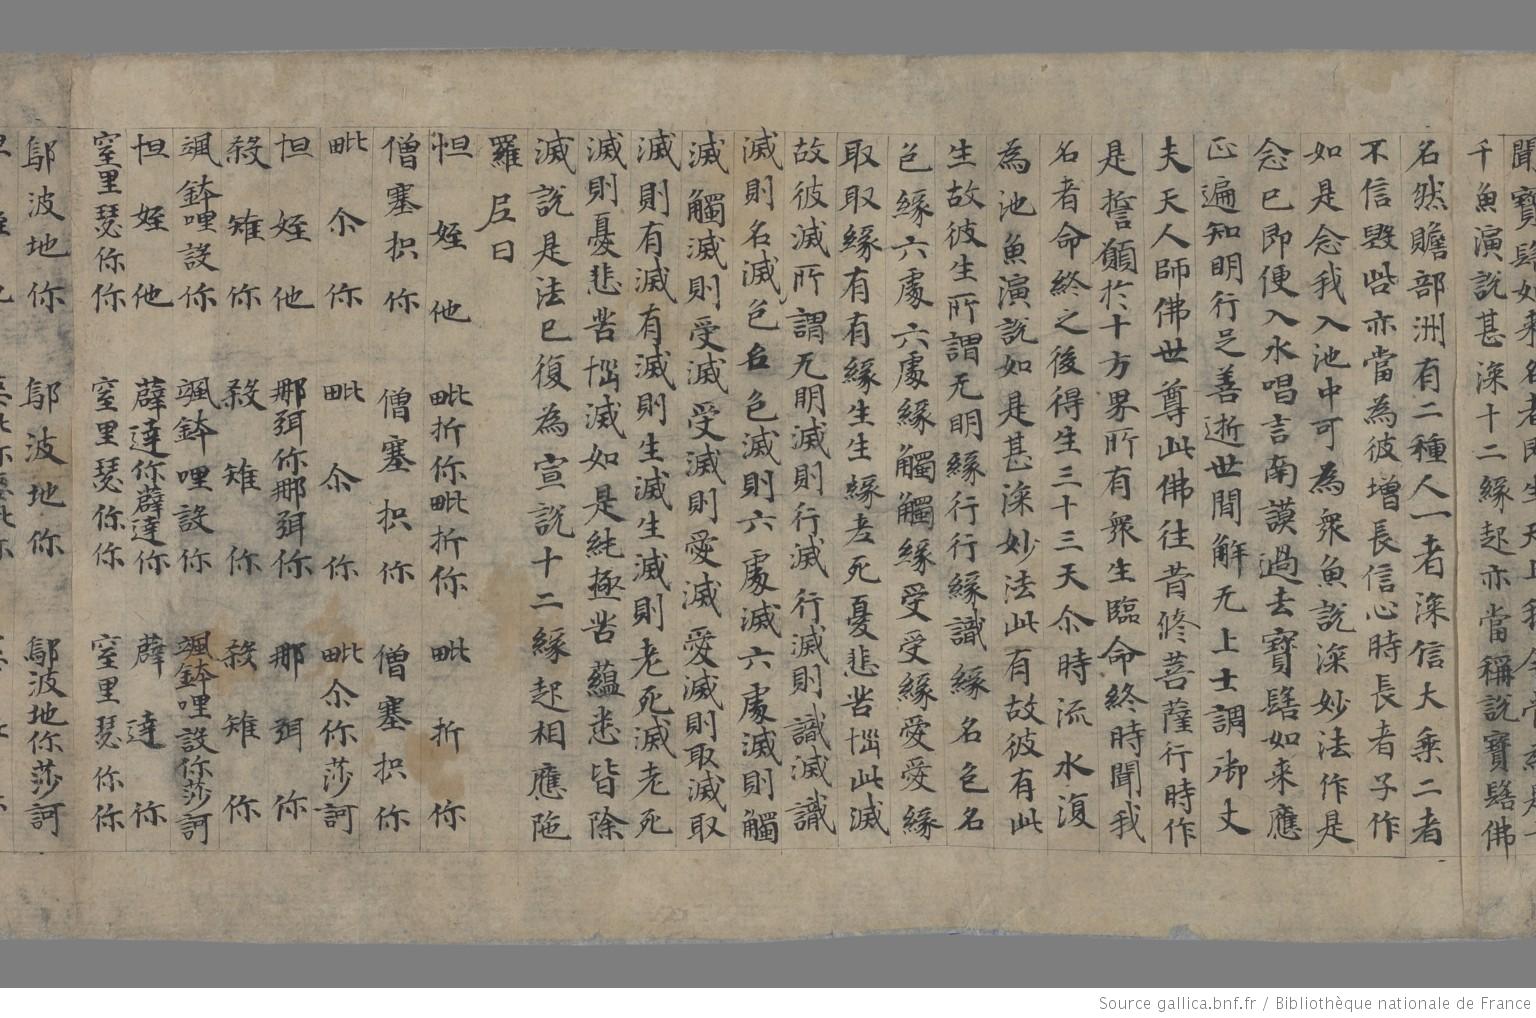 千魚演說甚深十二緣起亦當稱說寶髻佛
名然贍部洲有二種人一者深信大乘二者
不信毀呰亦當為彼增長信心時長者子作
如是念我入池中可為眾魚說深妙法作是
念已即便入水唱言南謨過去寶髻如來應
正遍知明行足善逝世間解无上士調御丈
夫天人師佛世尊此佛往昔修菩薩行時作
是誓願於十方界所有眾生臨命終時聞我
名者命終之後得生三十三天尒時流水復
為池魚演說如是甚深妙法此有故彼有此
生故彼生所謂无明緣行行緣識緣名色名
色緣六處六處緣觸觸緣受受緣愛愛緣
取取緣有有緣生生緣老死憂悲苦惱此滅
故彼滅所謂无明滅則行滅行滅則識滅識
滅則名滅色名色滅則六處滅六處滅則觸
滅觸滅則受滅受滅則愛滅愛滅則取滅取
滅則有滅有滅則生滅生滅則老死滅老死
滅則憂悲苦惱滅如是純極苦蘊悉皆除
滅說是法已復為宣說十二緣起相應陁
羅尼曰
怛姪他 毗折你毗折你 毗折你
僧塞枳你 僧塞枳你 僧塞枳你
毗尒你 毗尒你 毗尒你莎訶
怛姪他 那弭你那弭你 那弭你
殺雉你 殺雉你 殺雉你
颯鉢哩設你 颯鉢哩設你 颯鉢哩設你莎訶
怛姪他 薜達你薜達你 薜達你
窒里瑟你你 窒里瑟你你 窒里瑟你你
鄔波地你 鄔波地你 鄔波地你莎訶
Source gallica.bnf.fr / Bibliothèque nationale de France